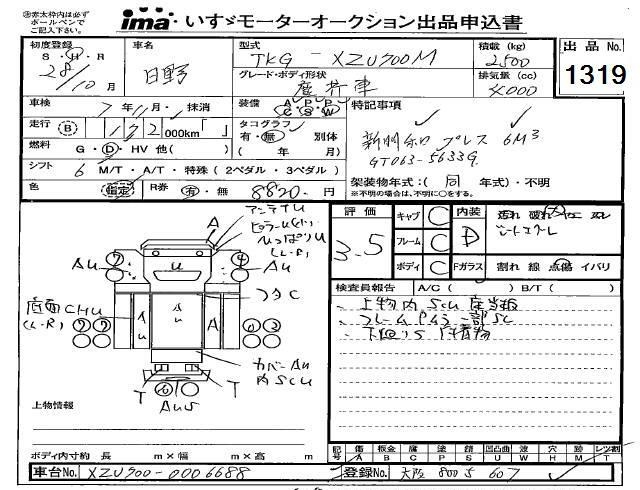 ※赤太枠内は必ず
ボールペンで
ご記入下さい。
ima いすゞモーターオークション出品申込書
初度登録 車名 型式 積載 (kg) 出品No.
S・H・R TKG-XZU700M 2,500
28/10月 日野 グレード・ボディ形状 排気量 (cc) 1319
塵芥車 4000
車検 7年11月・抹消 装備 A P P C S W 特記事項
走行 タコグラフ
000km「 」 有・無 別体 新明和 プレス 6M³
燃料 G・D・HV 他( ) ( 年 月) GT063-5633G
シフト 6 M/T・A/T・特殊 (2ペダル・3ペダル)
架装物年式:( 同 年式)・不明
色 指定 R券 有・無 8820円
※不明の場合は、不明に○をする。
アンテナU
A
評価 キャブ C 内装
3.5 フレーム C D シートエクレ
ボディ C Fガラス 割れ 線 点傷 イバリ
検査員報告 A/C ( ) B/T ( )
上物内SCU 座当板
フレームPG3 一部SC
下廻りS 付着物
AU AU
フタC
底面CHU
(L-R)
カバーAU
内SCU
T T
上物情報
ボディ内寸約 長 m×幅 m×高 m
記号 傷 板金 腐 塗 錆 凹凸曲 波 穴 跡 レンズ割
A B C P S U W H M T
車台No. XZU700-0006688 登録No. 大阪 800 す 607